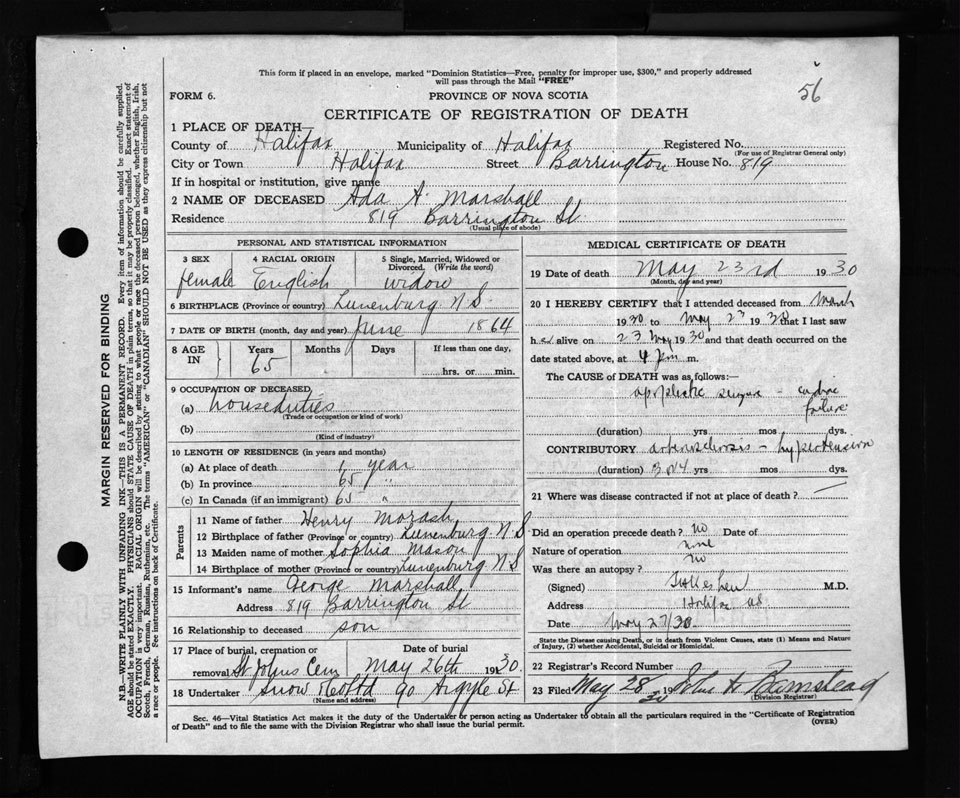 56
This form if placed in an envelope, marked "Dominion Statistics—Free, penalty for improper use, $300," and properly addressed
will pass through the Mail "FREE"
FORM 6.
PROVINCE OF NOVA SCOTIA
CERTIFICATE OF REGISTRATION OF DEATH
1 PLACE OF DEATH—
County of Halifax Municipality of Halifax Registered No.
(For use of Registrar General only)
City or Town Halifax Street Barrington House No. 819
If in hospital or institution, give name
2 NAME OF DECEASED Ada A. Marshall
Residence 819 Barrington St
(Usual place of abode)
PERSONAL AND STATISTICAL INFORMATION
3 SEX 4 RACIAL ORIGIN 5 Single, Married, Widowed or
Divorced. (Write the word)
female English widow
6 BIRTHPLACE (Province or country) Lunenburg N.S.
7 DATE OF BIRTH (month, day and year) June 1864
8 AGE IN Years Months Days If less than one day,
65 hrs. or min.
9 OCCUPATION OF DECEASED
(a) houseduties
(Trade or occupation or kind of work)
(b)
(Kind of industry)
10 LENGTH OF RESIDENCE (in years and months)
(a) At place of death year
(b) In province 65 "
(c) In Canada (if an immigrant) 65 "
Parents
11 Name of father Henry Morash
12 Birthplace of father (Province or country) Lunenburg N.S
13 Maiden name of mother Sophia Mason
14 Birthplace of mother (Province or country) Lunenburg N.S
15 Informant's name George Marshall
Address 819 Barrington St
16 Relationship to deceased son
17 Place of burial, cremation or Date of burial
removal St Johns Cem May 26th 1930
18 Undertaker Snow & Co Ltd 90 Argyle St
(Name and address)
MEDICAL CERTIFICATE OF DEATH
19 Date of death May 23rd 1930
(Month, day and year)
20 I HEREBY CERTIFY that I attended deceased from March
1930 to May 23 1930 that I last saw
her alive on 23 May 1930 and that death occurred on the
date stated above, at 4 pm m.
The CAUSE of DEATH was as follows:—
apoplectic seizure - cardiac
failure
(duration) yrs mos dys.
CONTRIBUTORY arteriosclerosis - hypertension
(duration) 3 or 4 yrs mos dys.
21 Where was disease contracted if not at place of death?
Did an operation precede death? no Date of
Nature of operation none
Was there an autopsy? no
(Signed) M.D.
Address Halifax NS
Date May 27/30
State the Disease causing Death, or in death from Violent Causes, state (1) Means and Nature
of Injury, (2) whether Accidental, Suicidal or Homicidal.
22 Registrar's Record Number
23 Filed May 28 1930 John H Barnstead
(Division Registrar)
Sec. 46—Vital Statistics Act makes it the duty of the Undertaker or person acting as Undertaker to obtain all the particulars required in the "Certificate of Registration
of Death" and to file the same with the Division Registrar who shall issue the burial permit.
(OVER)
MARGIN RESERVED FOR BINDING
N.B.—WRITE PLAINLY WITH UNFADING INK—THIS IS A PERMANENT RECORD. Every item of information should be carefully supplied.
AGE should be stated EXACTLY. PHYSICIANS should STATE CAUSE OF DEATH in plain terms, so that it may be properly classified. Exact statement of
OCCUPATION is very important. RACIAL ORIGIN will be described by stating to what people or race the deceased person belonged, whether English, Irish,
Scotch, French, German, Russian, Ruthenian, etc. The terms "AMERICAN" or "CANADIAN" SHOULD NOT BE USED as they express citizenship but not
a race or people. See instructions on back of Certificate.